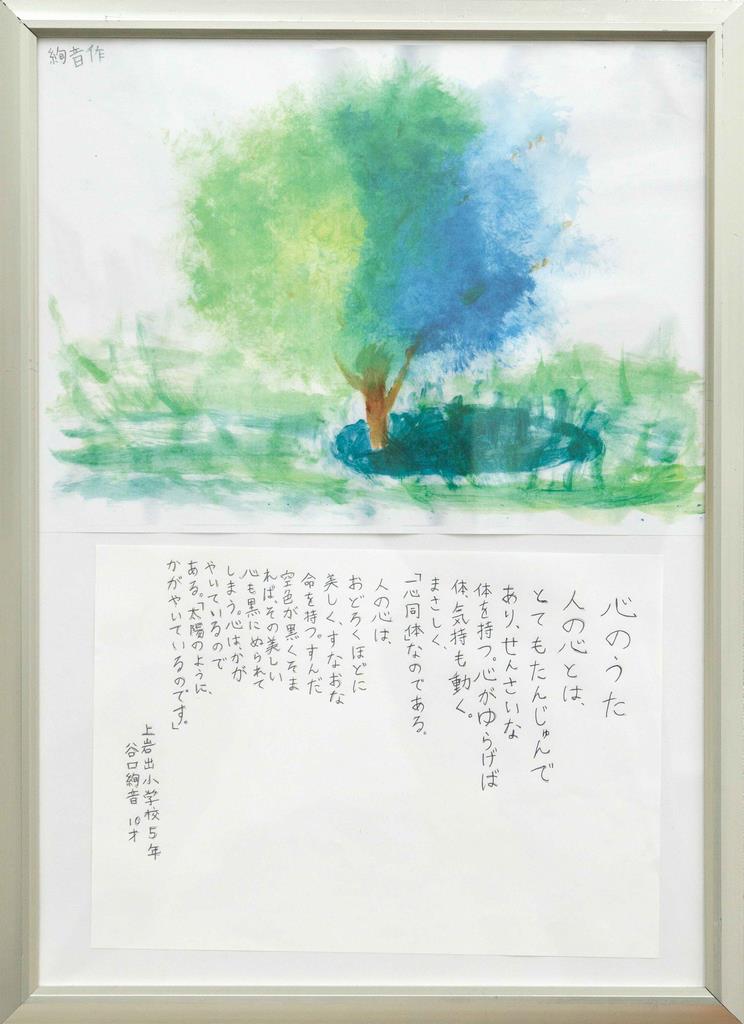 絢音作
心のうた
人の心とは、
とてもたんじゅんで
あり、せんさいな
体を持つ。心がゆらげば
体、気持も動く。
まさしく、
「心同体」なのである。
人の心は、
おどろくほどに
美しく、すなおな
命を持つ。すんだ
空色が黒くそま
れば、その美しい
心も黒にぬられて
しまう。心は、かが
やいているので
ある。「太陽のように、
かがやいているのです。」
上岩出小学校5年
谷口絢音 10才